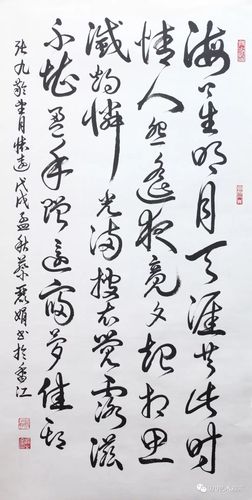 海上生明月天涯共此时
情人怨遥夜竟夕起相思
灭烛怜光满披衣觉露滋
不堪盈手赠还寝梦佳期
张九龄望月怀远戊戌孟秋蔡丽娟书于香江